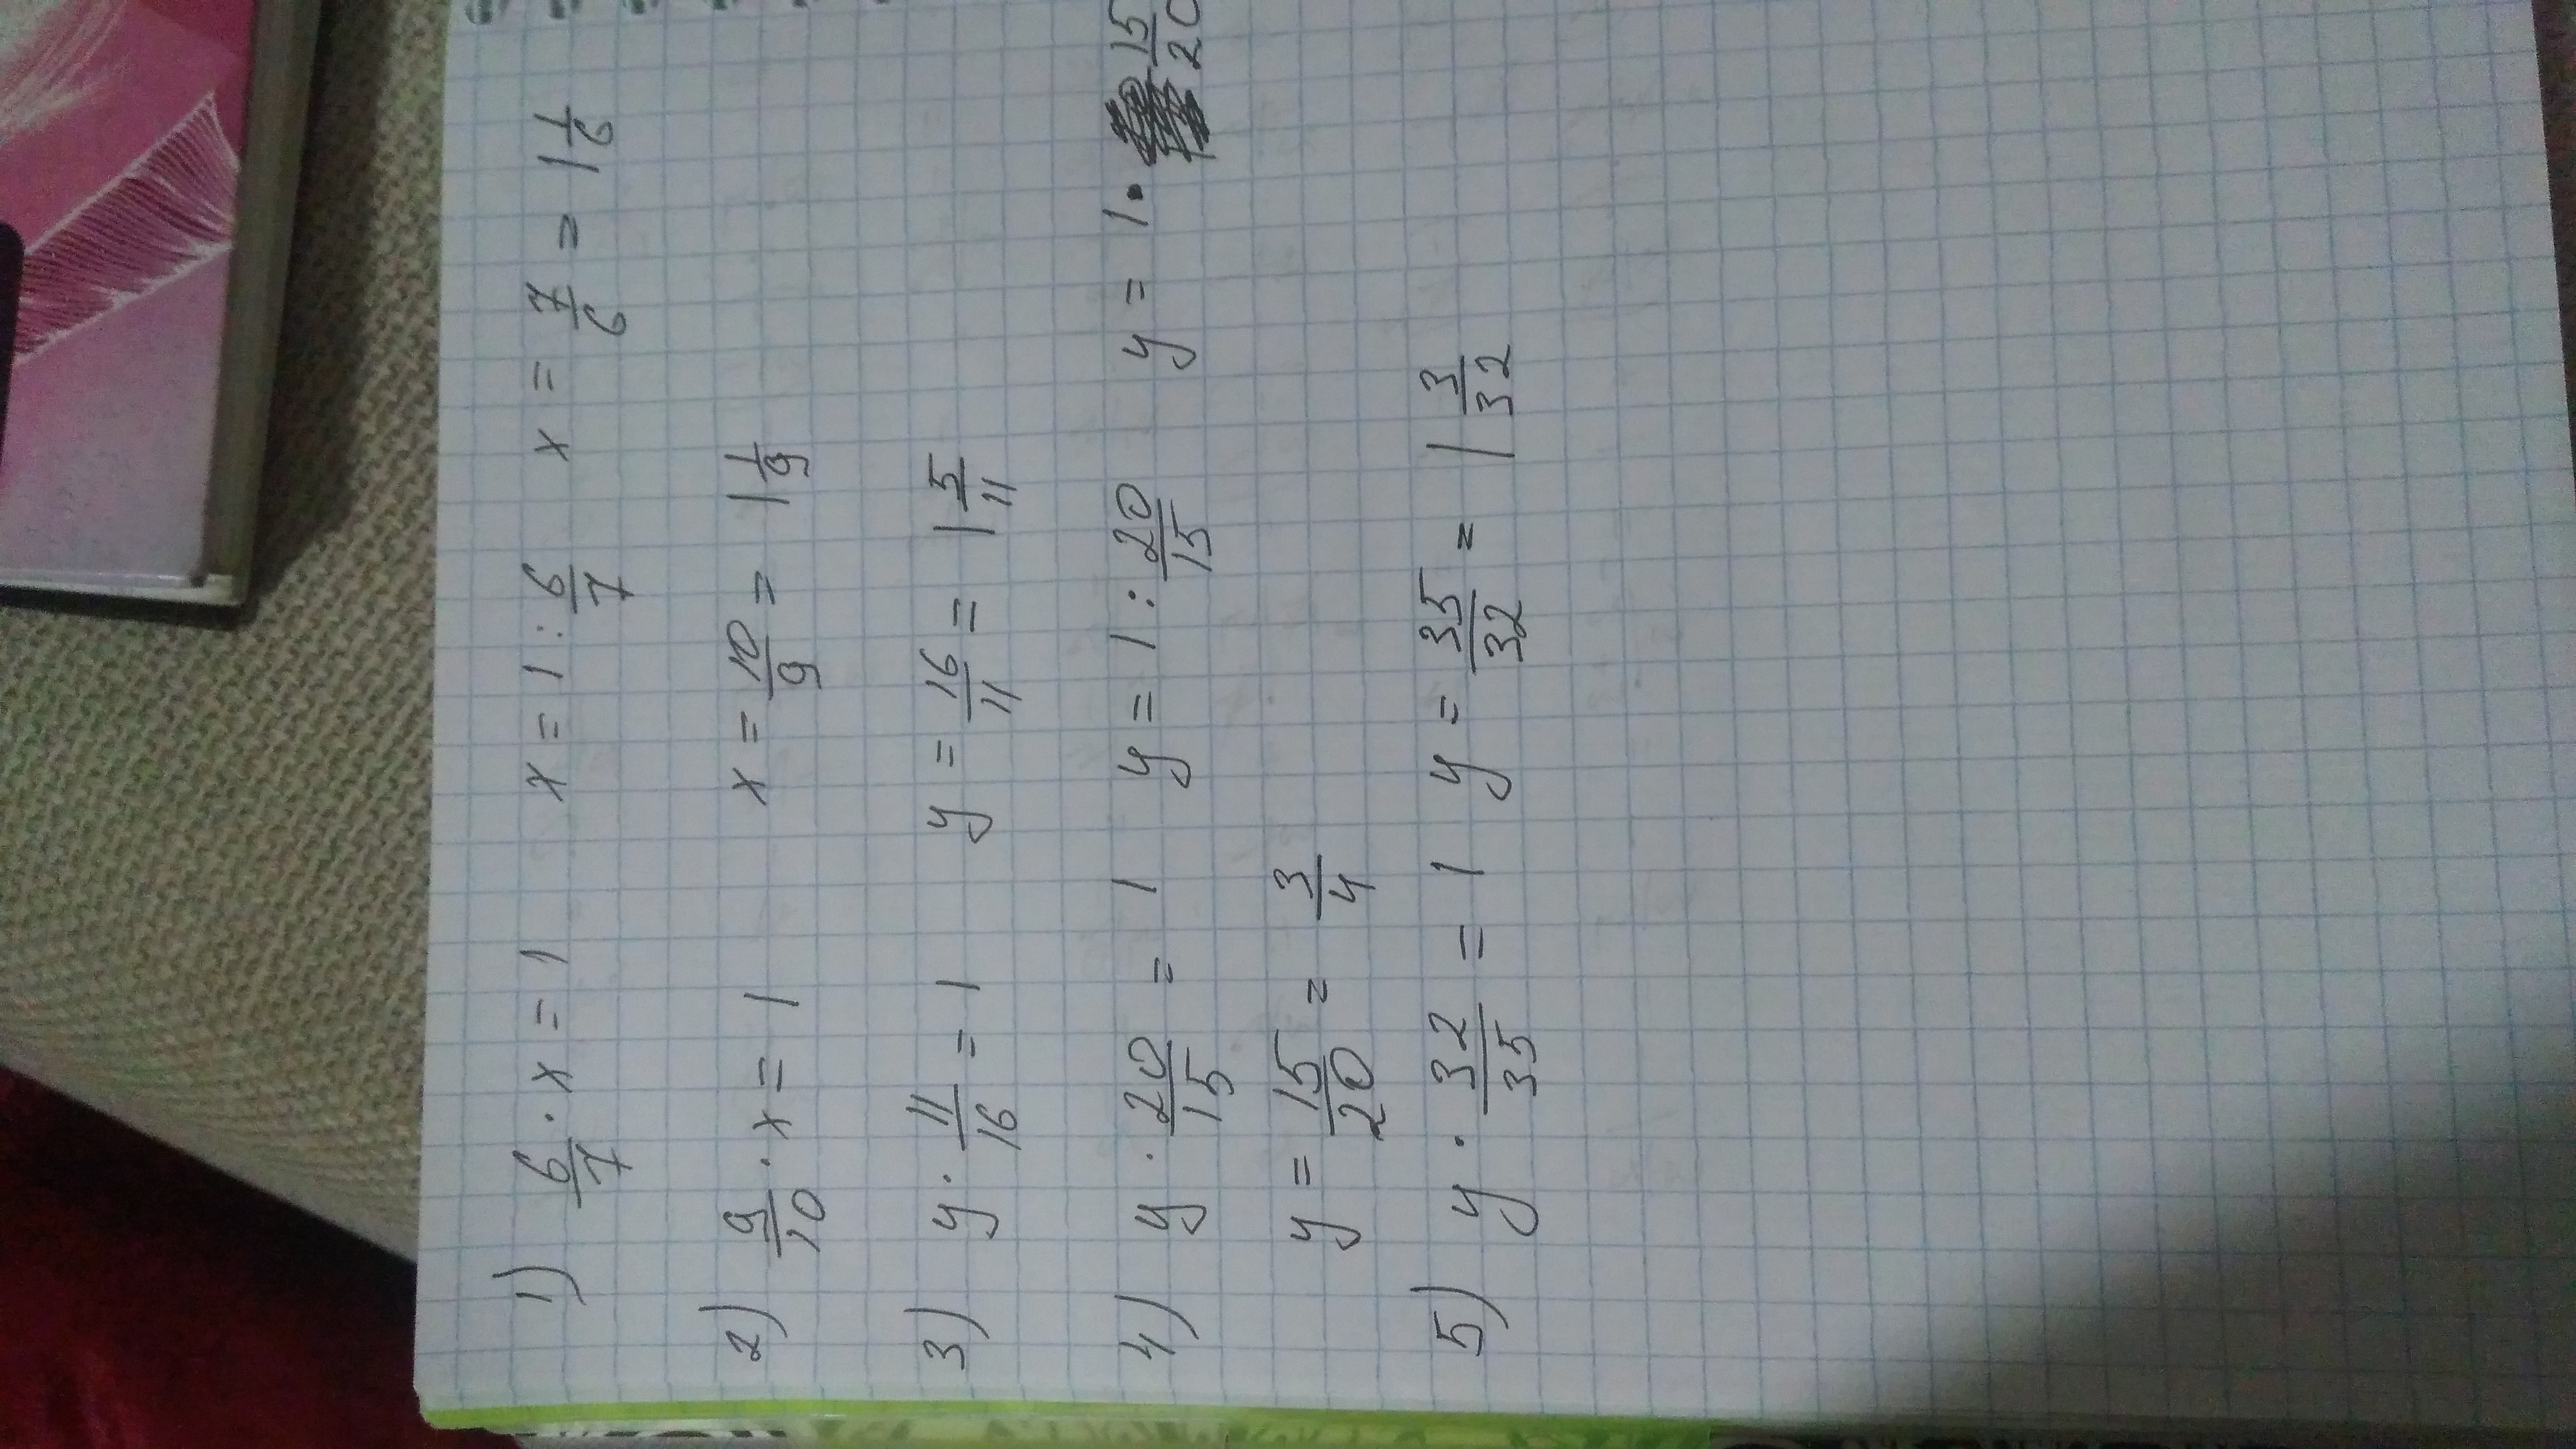 1) 6/7 · x = 1 x = 1 : 6/7 x = 7/6 = 1 1/6
2) 9/10 · x = 1 x = 10/9 = 1 1/9
3) y · 11/16 = 1 y = 16/11 = 1 5/11
4) y · 20/15 = 1 y = 1 : 20/15 y = 1 · 15/20
y = 15/20 = 3/4
5) y · 32/35 = 1 y = 35/32 = 1 3/32